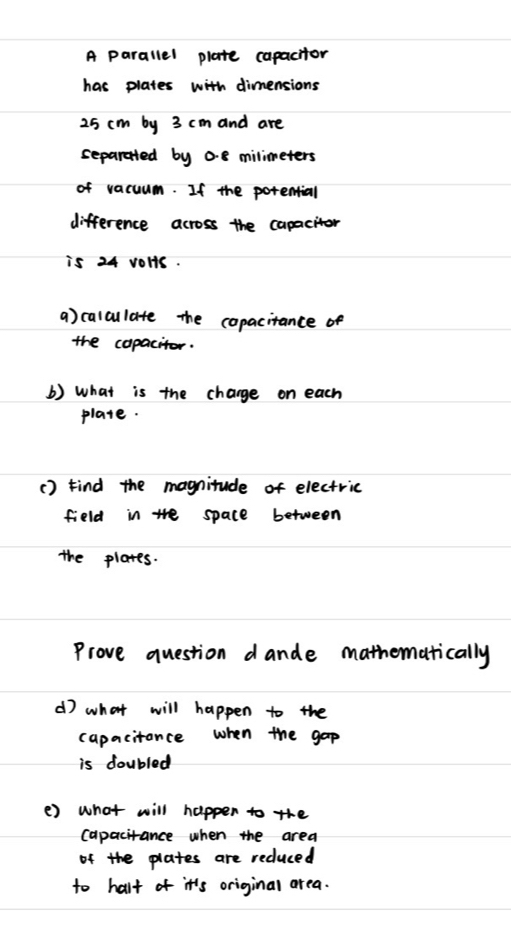 A parallel plate capacitor
has plates with dimensions
25 cm by 3 cm and are
separated by 0.8 milimeters
of vacuum. If the potential
difference across the capacitor
is 24 volts.
a) calculate the capacitance of
the capacitor.
b) What is the charge on each
plate.
c) find the magnitude of electric
field in the space between
the plates.
Prove question d and e mathematically
d) what will happen to the
capacitance when the gap
is doubled
e) what will happen to the
capacitance when the area
of the plates are reduced
to half of it's original area.